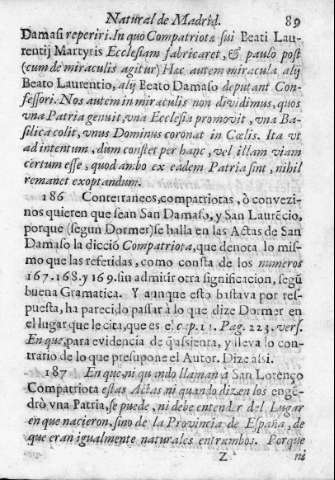 Natural de Madrid. 89
Damasi reperiri. In quo Compatriota sui Beati Lau-
rentij Martyris Ecclesiam fabricaret, & paulo post
(cum de miraculis agitur) Hæc autem miracula alij
Beato Laurentio, alij Beato Damaso deputant Con-
fessori. Nos autem in miraculis non dividimus, quos
vna Patria genuit, vna Ecclesia promovit, vna Ba-
silica colit, vnus Dominus coronat in Cœlis. Ita vt
ad intentum, dum constet per hanc, vel illam viam
certum esse, quod ambo ex eadem Patria sint, nihil
remanet exoptandum.
186 Conterraneos, compatriotas, ò convezi-
nos quieren que sean San Damaso, y San Laurẽcio,
porque (segun Dormer) se halla en las Actas de San
Damaso la dicciò Compatriota, que denota lo mis-
mo que las referidas, como consta de los numeros
167. 168. y 169. sin admitir otra significacion, segũ
buena Gramatica. Y aunque esto bastava por res-
puesta, ha parecido passar à lo que dize Dormer en
el lugar que le cita, que es el cap. 11. Pag. 223. vers.
En que, para evidencia de q̃ assienta, y lleva lo con-
trario de lo que presupone el Autor. Dize assi.
187 En que ni quando llaman à San Lorenço
Compatriota estas Actas ni quando dizen los engẽ-
drò vna Patria, se puede, ni debe entender del Lugar
en que nacieron, sino de la Provincia de España, de
que eran igualmente naturales entrambos. Porque
Z ni